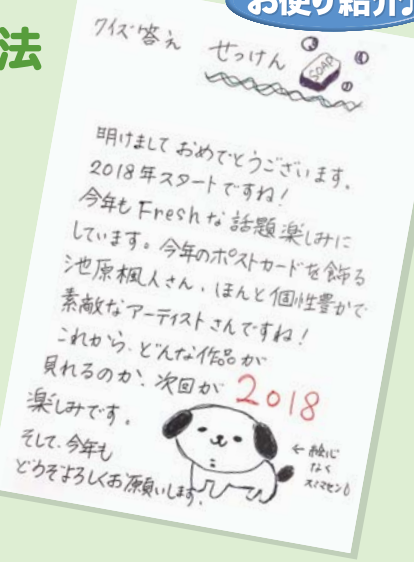 お便り紹介
法
クイズ答え せっけん
SOAP
明けまして おめでとうございます。
2018年スタートですね!
今年もFreshな話題楽しみに
しています。今年のポストカードを飾る
池原楓人さん、ほんと個性豊かで
素敵なアーティストさんですね!
これから、どんな作品が
見れるのか、次回が
2018
楽しみです。
そして、今年も
どうぞよろしくお願いします。
← 絵心
なく
スミマセン